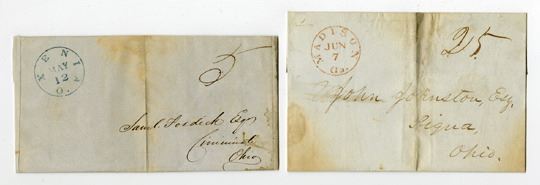 XENIA
MAY
12
O.
5
Saml. Fosdick Esqr
Cincinnati
Ohio
MADISON
JUN
7
Ga.
25
John Johnston, Esq.
Piqua,
Ohio.